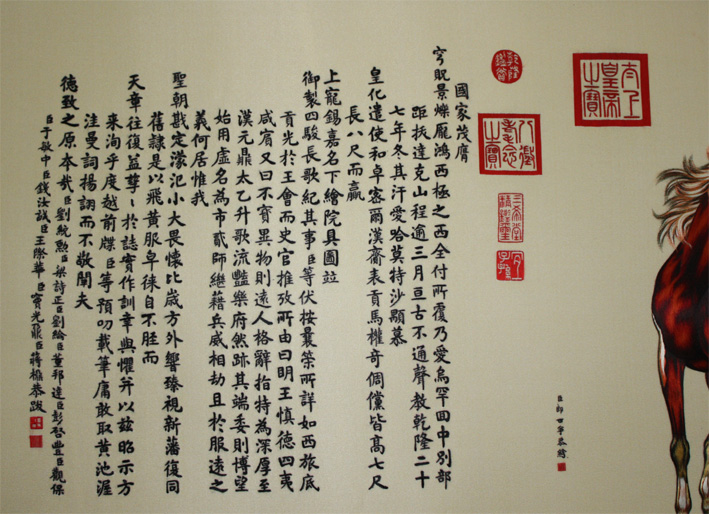 太上皇帝之寶
乾隆鑑賞
八徵耄念之寶
三希堂精鑑璽
宜子孫
臣郎世寧恭繪
國家茂膺
穹貺景爍龐鴻西極之西全付所覆乃愛烏罕回中別部
距拔達克山程逾三月亘古不通聲教乾隆二十
七年冬其汗愛哈莫特沙顯慕
皇化遣使和卓密爾漢齎表貢馬權奇倜儻皆高七尺
長八尺而贏
上寵錫嘉名下繪院具圖竝
御製四駿長歌紀其事臣等伏按曩築所詳如西旅底
貢光於王會而史官推攷所由曰明王慎德四夷
咸賓又曰不寶異物則遠人格辭指特為深厚至
漢元鼎太乙升歌流豔樂府然跡其端委則博望
始用虛名為市貳師繼藉兵威相劫且於服遠之
義何居惟我
聖朝戡定濛汜小大畏懷比嵗方外響臻視新藩復同
舊隷是以飛黃服皁徠自不脛而
天章往復益孳〻於誌實作訓韋與懼筭以玆昭示方
來洵乎度越前牒臣等預叨載筆庸敢取黃池渥
洼曼詞揚詡而不敬聞夫
德致之原本哉臣劉統勲臣梁詩正臣劉綸臣董邦達臣彭啓豐臣觀保
臣于敏中臣錢汝誠臣王際華臣竇光鼐臣蔣檙恭跋